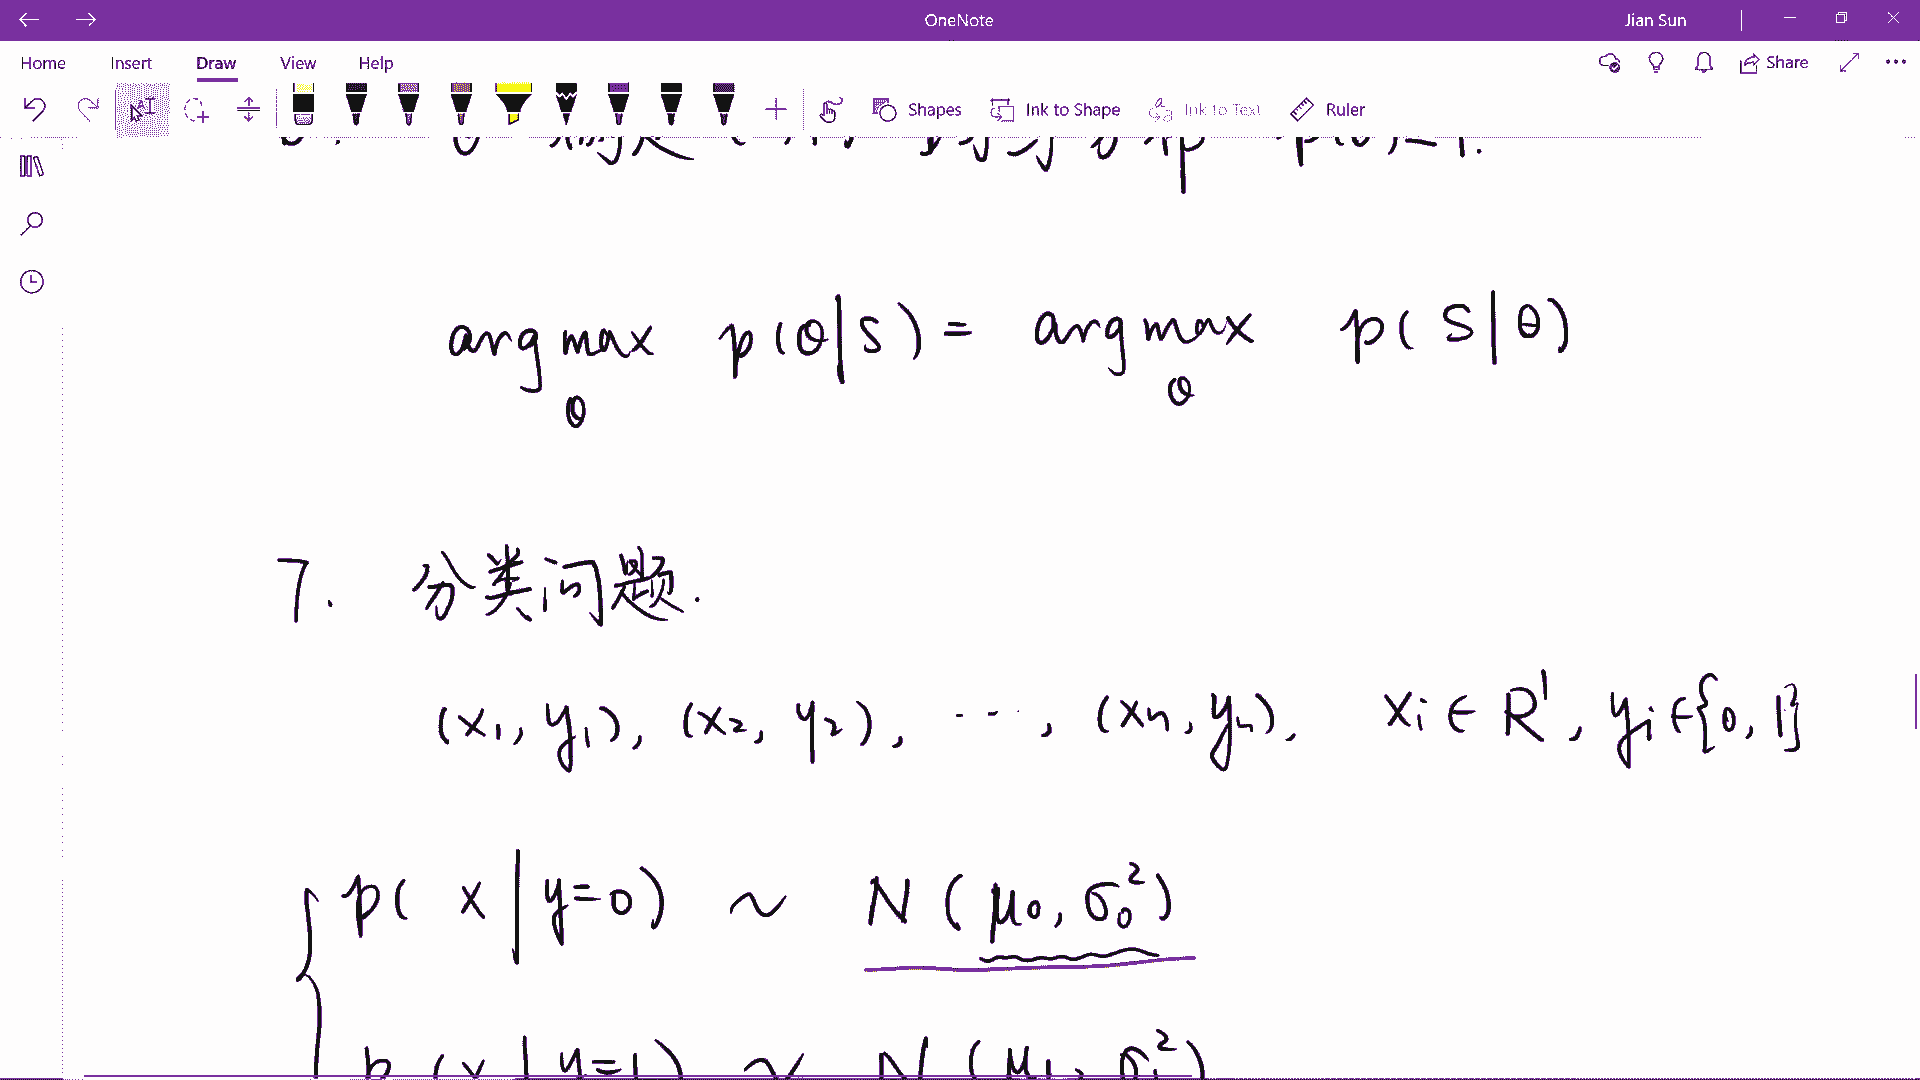 OneNote
Jian Sun
Home Insert Draw View Help
Share
Shapes Ink to Shape Ink to Text Ruler
θ 满足 均匀分布 p(θ)=1.
arg max p(θ|S) = arg max p(S|θ)
θ θ
7. 分类问题.
(x₁, y₁), (x₂, y₂), ..., (xₙ, yₙ), xᵢ ∈ R¹, yᵢ ∈ {0, 1}
p( x | y=0 ) ~ N ( μ₀, σ₀² )
p ( x | y=1 ) ~ N ( μ₁, σ₁² )